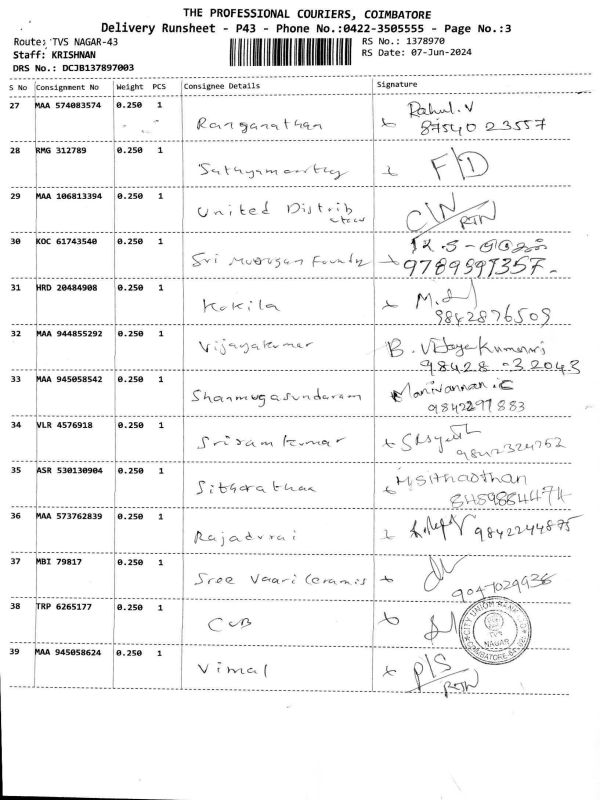 THE PROFESSIONAL COURIERS, COIMBATORE
Delivery Runsheet - P43 - Phone No.:0422-3505555 - Page No.:3
Route: TVS NAGAR-43
RS No.: 1378970
Staff: KRISHNAN
RS Date: 07-Jun-2024
DRS No.: DCJB137897003
S No Consignment No Weight PCS Consignee Details Signature
27 MAA 574083574 0.250 1 Ranganathan Rahul.V
87540 23557
28 RMG 312789 0.250 1 Sathyamoorthy F/D
29 MAA 106813394 0.250 1 United Distrib
utors C/N
RTN
30 KOC 61743540 0.250 1 Sri Murugan Foundry
9789597357
31 HRD 20484908 0.250 1 Kokila
9842876509
32 MAA 944855292 0.250 1 Vijayakumar B. Vijayakumari
98428 - 32043
33 MAA 945058542 0.250 1 Shanmugasundaram Manivannan.C
9842297883
34 VLR 4576918 0.250 1 Sriramkumar
9842324752
35 ASR 530130904 0.250 1 Sitharathan
8489884474
36 MAA 573762839 0.250 1 Rajadurai 9842244875
37 MBI 79817 0.250 1 Sree Vaari Ceramis
9047029936
38 TRP 6265177 0.250 1 CUB
CITY UNION BANK
TVS
NAGAR
COIMBATORE
39 MAA 945058624 0.250 1 Vimal P/S
RTN